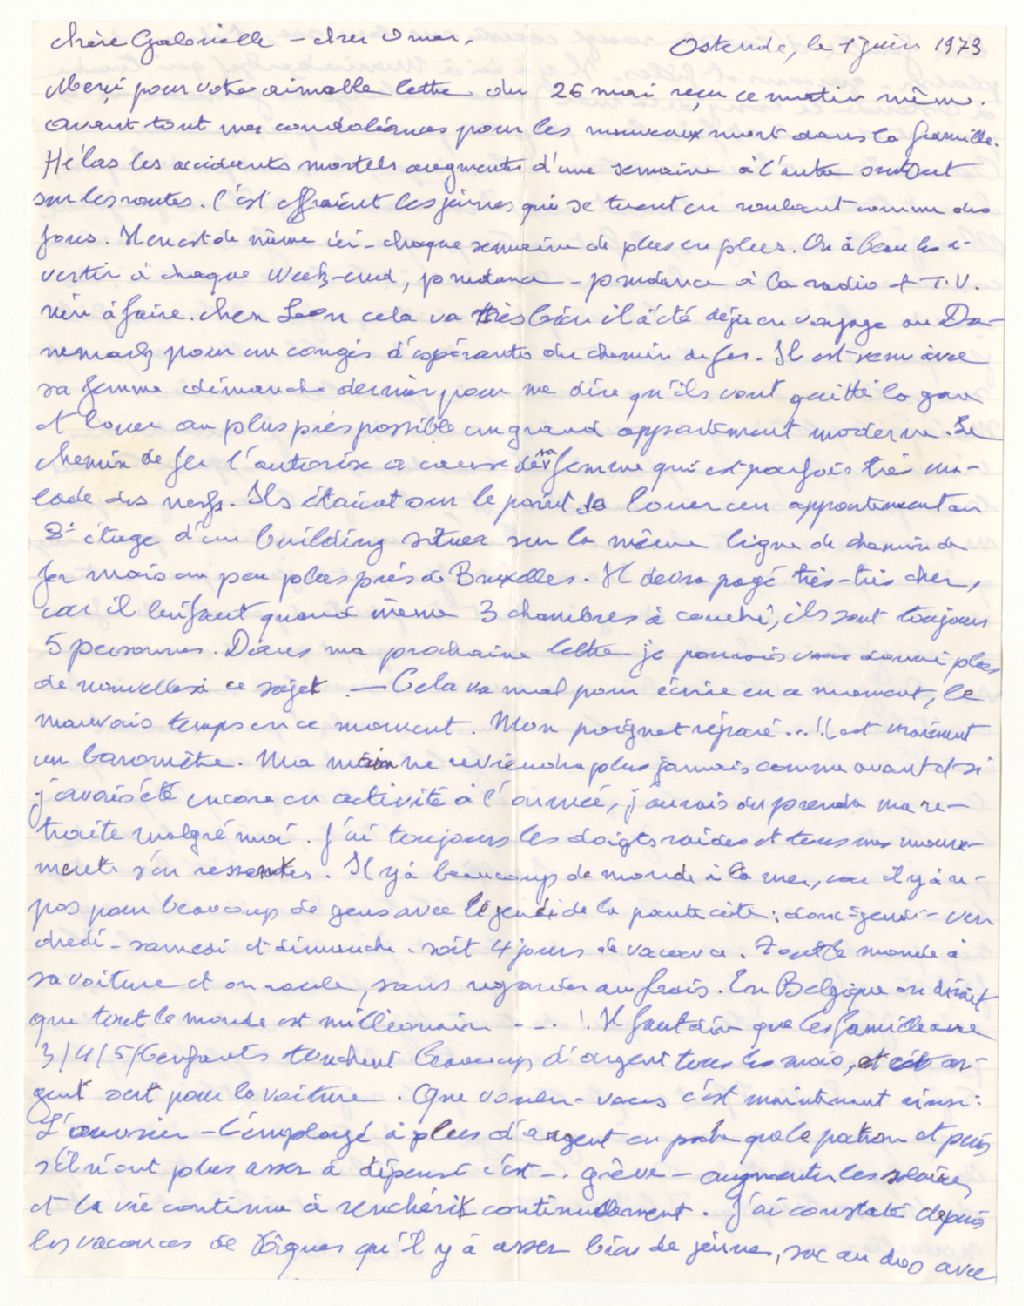 chère Gabrielle - cher Omer. Ostende, le 1 juin 1973
Merçi pour votre aimable lettre du 26 mai reçu ce matin même.
avant-tout mes condoléances pour les nouveaux mort dans la famille.
Hélas les accidents mortels augmente d'une semaine à l'autre surtout
sur les routes. C'est effraient les jeunes qui se tuent en roulant comme des
fous. Il en est de même ici - chaque semaine de plus en plus. On à beau les a-
vertir à chaque week-end, prudence - prudence à la radio + T.V.
rien à faire. chez Leon cela va très bien il à été déja en voyage au Da-
nemark pour un congés d'espéranto du chemin de fer. Il est venu avec
sa femme dimanche dernier pour me dire qu'ils vont quitté la gare
et louer au plus près possible un grand appartement moderne. Le
chemin de fer l'autorise a cause de sa femme qui est parfois très ma-
lade des nerfs. Ils étaient sur le point de louer un appartement au
2è étage d'un building situer sur la même ligne de chemin de
fer mais un peu plus près de Bruxelles. Il devra payé très-très cher,
car il lui faut quand même 3 chambres à couché, ils sont toujours
5 personnes. Dans ma prochaine lettre je pourrais vous donner plus
de nouvelles à ce sujet. — Cela va mal pour écrire en ce moment, le
mauvais temps en ce moment. Mon poignet réparé... il est vraiment
un baromètre. Ma main ne reviendra plus jamais comme avant et si
j'avais été encore en activité à l'armée, j'aurais du prendre ma re-
traite malgré moi. J'ai toujours les doigts raides et tous mes mouve-
ments s'en ressentes. Il y à beaucoup de monde à la mer, car il y à re-
pos pour beaucoup de gens avec le jeudi de la pantecôte: donc jeudi - ven
dredi - samedi et dimanche. soit 4 jours de vacance. Tout le monde à
sa voiture et on roule, sans regarder au frais. En Belgique on dirait
que tout le monde est millionnaire - - . ! Il faut dire que les famille avec
3/4/5/6 enfants touchent beaucoup d'argent tous les mois, et cet ar-
gent sert pour la voiture. Que voulez-vous c'est maintenant ainsi:
L'ouvrier - l'employé à plus d'argent en poche que le patron et puis
s'il n'ont plus asser à dépensé c'est - . grève - augmenter les salaires
et la vie continue à renchérir continuellement. J'ai constaté depuis
les vacances de Pâques qu'il y à asser bien de jeunes, sac au dos avec